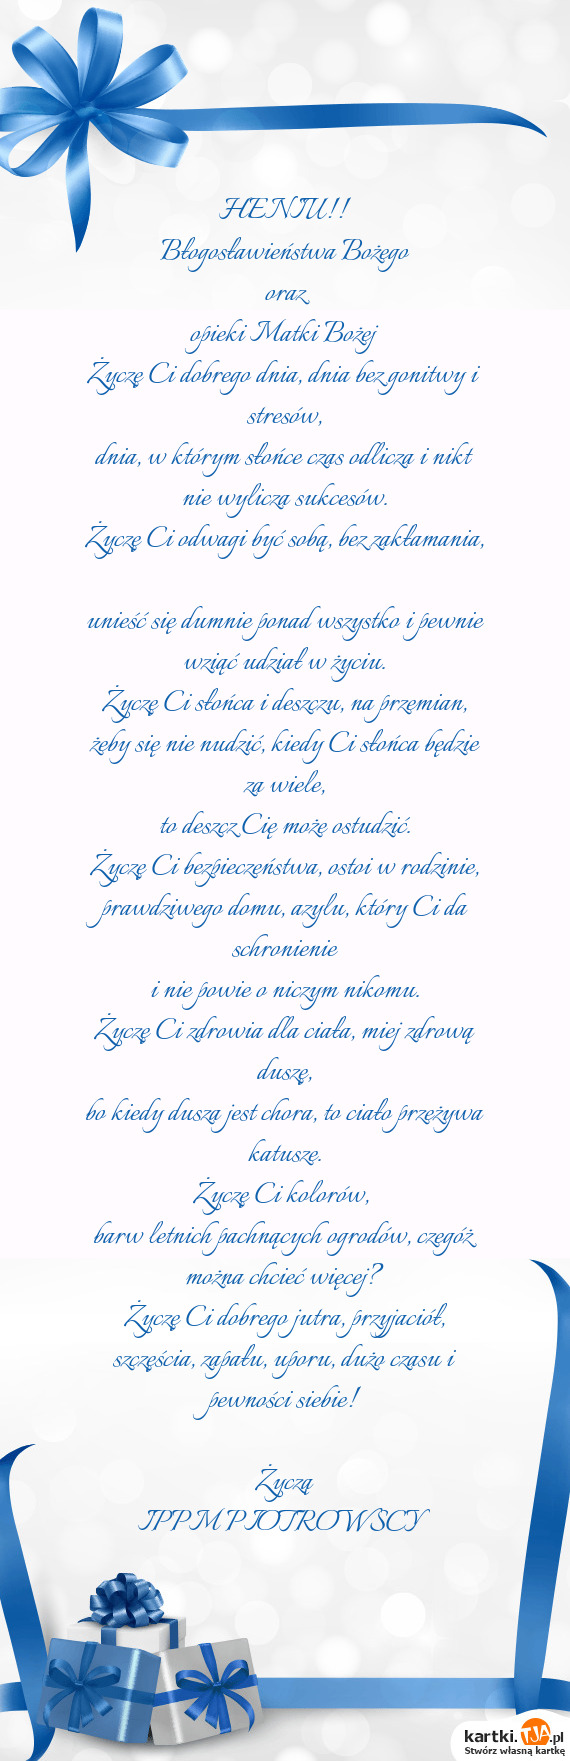 HENIU!!
Błogosławieństwa Bożego
oraz
opieki Matki Bożej
Życzę Ci dobrego dnia, dnia bez gonitwy i
stresów,
dnia, w którym słońce czas odlicza i nikt
nie wylicza sukcesów.
Życzę Ci odwagi być sobą, bez zakłamania,
unieść się dumnie ponad wszystko i pewnie
wziąć udział w życiu.
Życzę Ci słońca i deszczu, na przemian,
żeby się nie nudzić, kiedy Ci słońca będzie
za wiele,
to deszcz Cię może ostudzić.
Życzę Ci bezpieczeństwa, ostoi w rodzinie,
prawdziwego domu, azylu, który Ci da
schronienie
i nie powie o niczym nikomu.
Życzę Ci zdrowia dla ciała, miej zdrową
duszę,
bo kiedy dusza jest chora, to ciało przeżywa
katusze.
Życzę Ci kolorów,
barw letnich pachnących ogrodów, czegóż
można chcieć więcej?
Życzę Ci dobrego jutra, przyjaciół,
szczęścia, zapału, uporu, dużo czasu i
pewności siebie!
Życzą
IPPM PIOTROWSCY
kartki.TJA.pl
Stwórz własną kartkę